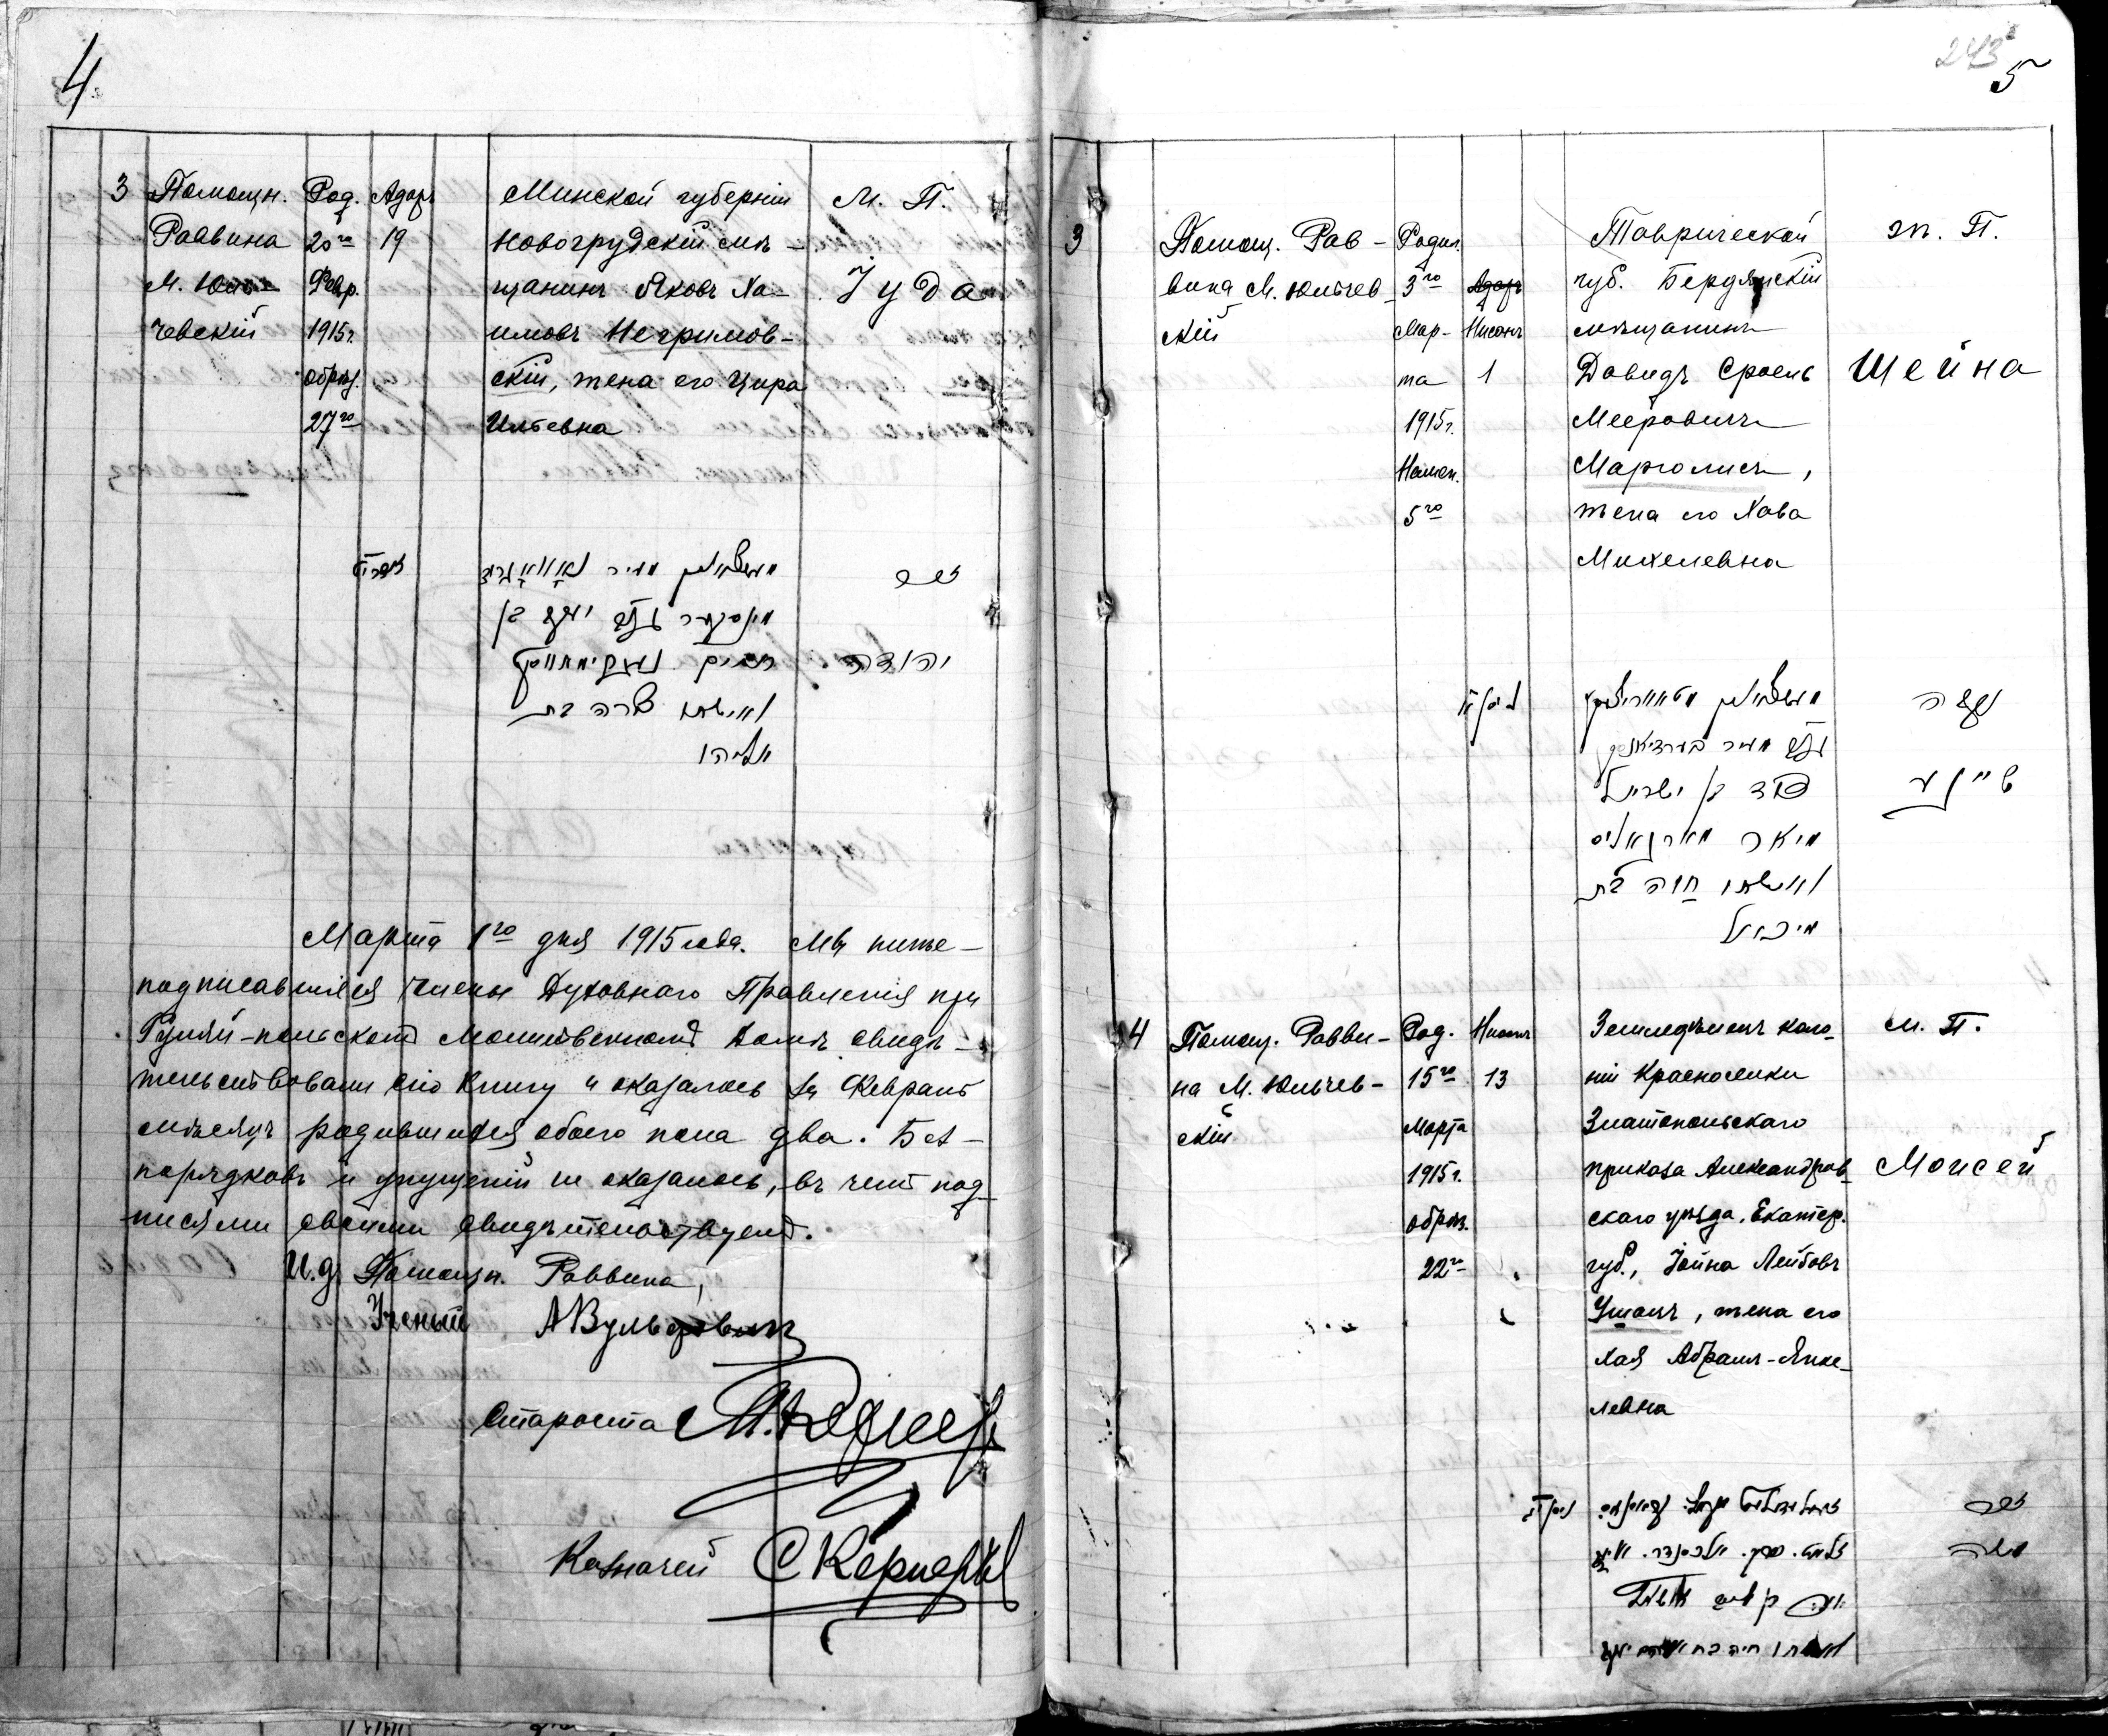 4.
3
Помощн.
Раввина
М. Юль-
чевскій
Род.
20го
Февр.
1915г.
обрѣз.
27го
Адаръ
19
Минской губерніи
Новогрудскій мѣ-
щанинъ Яковъ Ха-
имовъ Негримов-
скій, жена его Цира
Ильевна
М. П.
Іуда
זכר
יהודה
יעקב בן
חיים
ואשתו שרה בת
אליהו
Марта 1го дня 1915 года. Мы ниже-
подписавшіеся члены Духовнаго Правленія при
Гуляй-польскомъ Молитвенномъ домѣ свидѣ-
тельствовали сію книгу и оказалось за Февраль
мѣсяцъ родившихся обоего пола два. Без-
порядковъ и упущеній не оказалось, въ чемъ под-
писями своими свидѣтельствуемъ.
И.д. Помощн. Раввина,
Ученый АВульфовичъ
Староста
Казначей СКернеръ
243
5
3
Помощ. Рав-
вина М. Юльчев-
скій
Родил.
3го
Мар-
та
1915г.
Намен.
5го
Адаръ
Нисонъ
1
Таврической
губ. Бердянскій
мѣщанинъ
Довидъ Сроель
Мееровичъ
Марголисъ,
жена его Хава
Михелевна
ж. П.
Шейна
נקבה
שיינע
דוד בן ישראל
מיאר מארגאליס
ואשתו חוה בת
מיכאל
4
Помощ. Равви-
на М. Юльчев-
скій
Род.
15го
Марта
1915г.
обрѣз.
22го
Нисонъ
13
Земледѣлецъ коло-
ніи Красноселки
Златопольскаго
приказа Александров-
скаго уѣзда, Екатер.
губ., Іойна Лейбовъ
Уманъ, жена его
Хая Абрамъ-Янке-
левна
М. П.
Моисей
זכר
משה